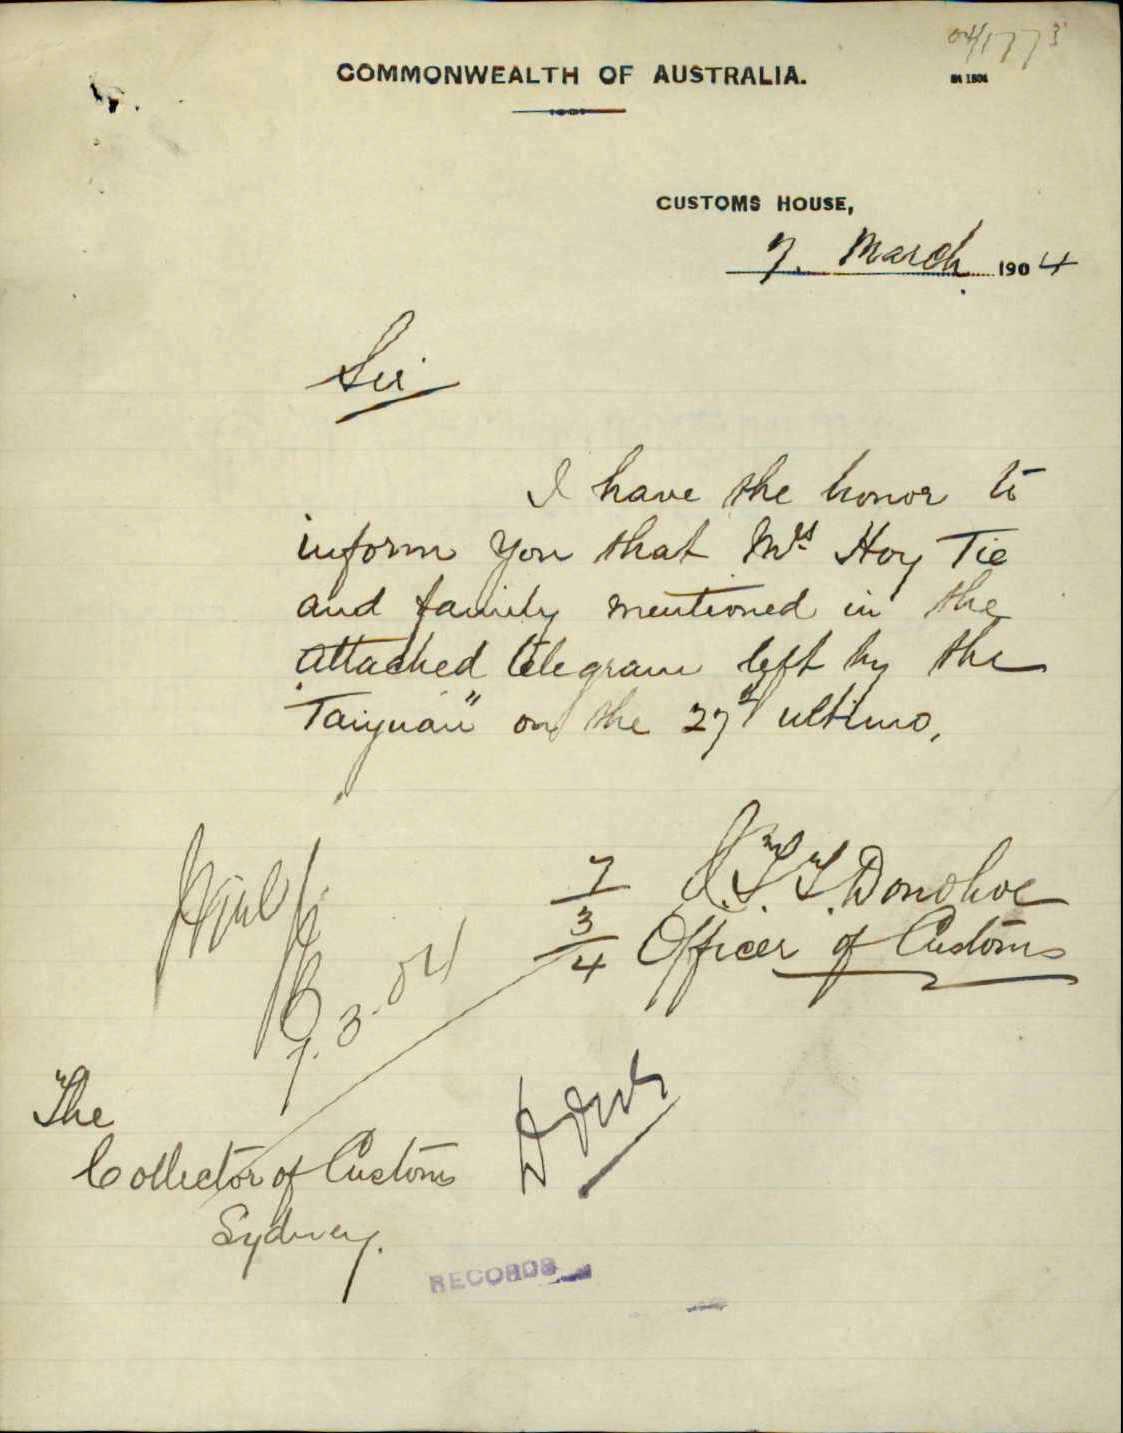 04/1773
COMMONWEALTH OF AUSTRALIA.
CUSTOMS HOUSE,
7. March 1904
Sir
I have the honor to
inform you that Mrs Hoy Tie
and family mentioned in the
attached telegram left by the
"Taiyuan" on the 27th ultimo.
7
3
4
J.T.T. Donohoe
Officer of Customs
7.3.04
The
Collector of Customs
Sydney.
RECORDS